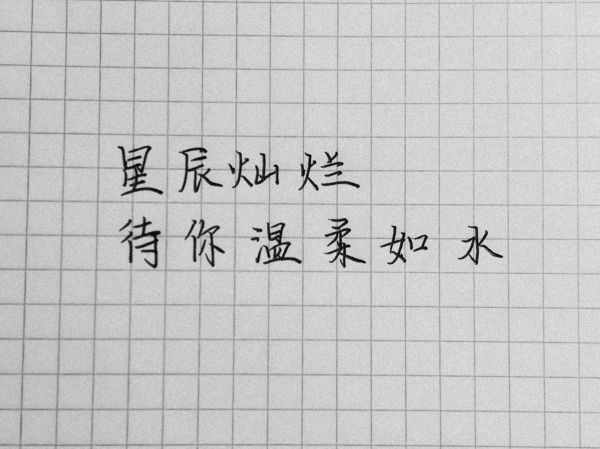 星辰灿烂
待你温柔如水